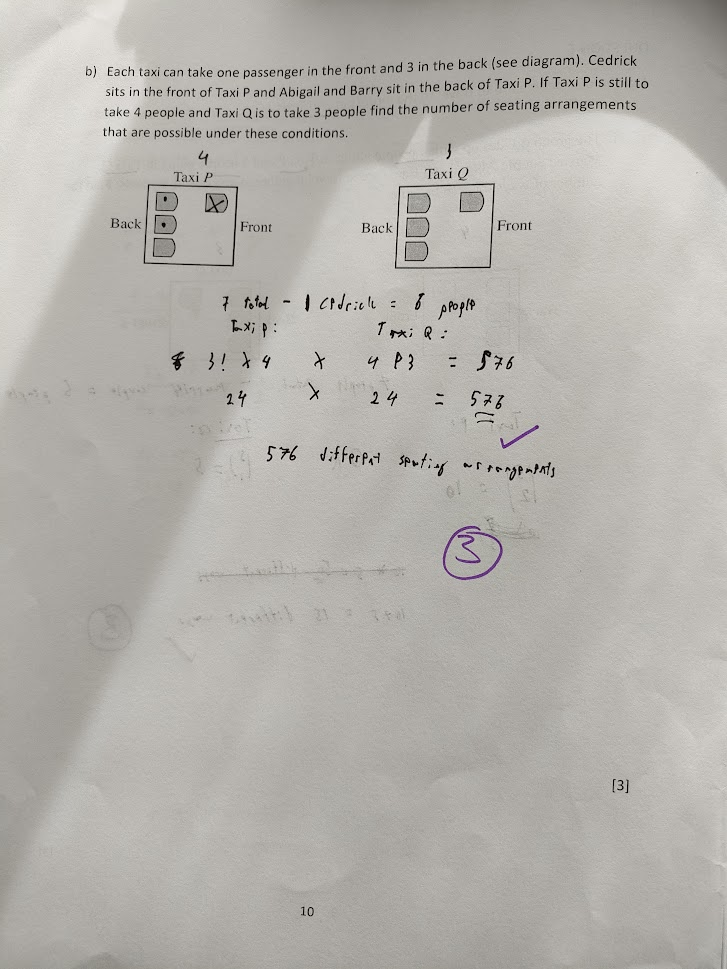 b) Each taxi can take one passenger in the front and 3 in the back (see diagram). Cedrick
sits in the front of Taxi P and Abigail and Barry sit in the back of Taxi P. If Taxi P is still to
take 4 people and Taxi Q is to take 3 people find the number of seating arrangements
that are possible under these conditions.
4
3
Taxi P
Taxi Q
Back
Front
Back
Front
7 total - 1 Cedrick = 6 people
Taxi P: Taxi Q:
3! × 4 × 4 P3 = 576
24 × 24 = 576
576 different seating arrangements
3
[3]
10